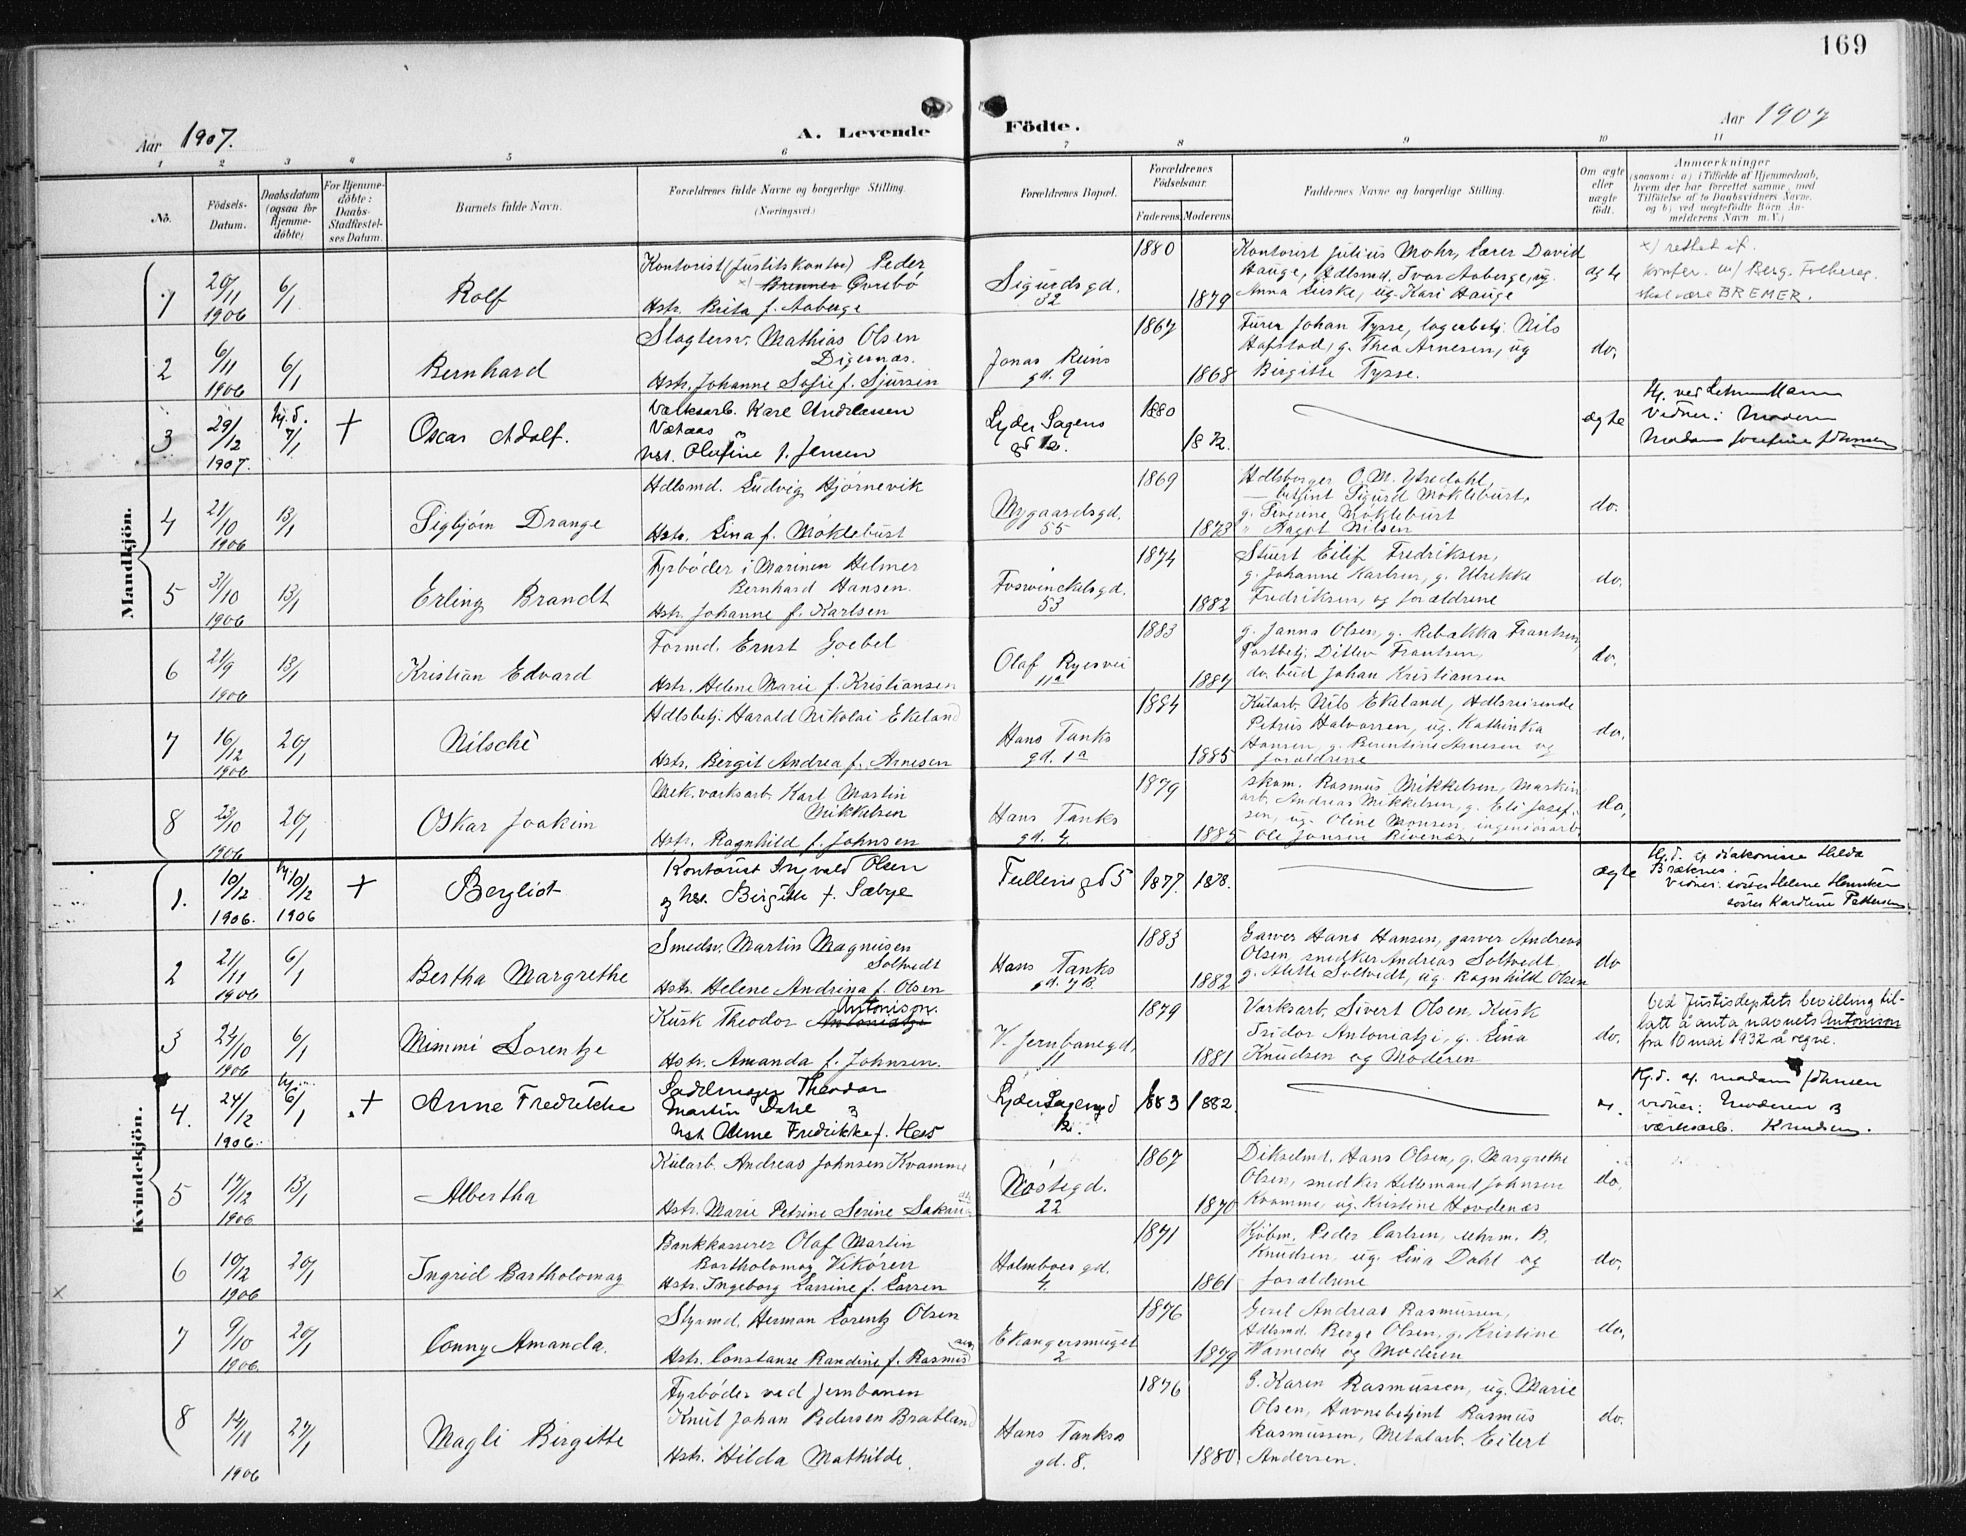 169
Aar 1907.
A. Levende Födte.
Aar 1907
1 2 3 4 5 6 7 8 9 10 11
No.
Födsels-Datum.
Daabsdatum (ogsaa for Hjemme-döbte)
For Hjemme-döbte: Daabs-Stadfæstel-ses Datum.
Barnets fulde Navn.
Forældrenes fulde Navne og borgerlige Stilling.
(Næringsvei.)
Forældrenes Bopæl.
Forældrenes Födselsaar.
Faderens. Moderens.
Faddernes Navne og borgerlige Stilling.
Om ægte eller uægte födt.
Anmærkninger
(saasom: a) i Tilfælde af Hjemmedaab,
hvem der har forrettet samme, med
Tilföielse af to Daabsvidners Navne,
og b) ved uægtefödte Börn An-
melderens Navn m. V.)
Mandkjön.
1 20/11 1906 6/1 Rolf
Kontorist (Justitskontor) Peder
x) Bremer Øvrebø
Hstr. Brita f. Aaberge
Sigurdsgd. 32
1880 1879
Kontorist Julius Mohr, Lærer David
Hauge, Hdlsmd. Ivar Aaberge, ug.
Anna Liske, ug. Kari Hauge
ægte
x) rettet if.
konfer. m/ Berg. Folkereg.
skal være BREMER.
2 6/11 1906 6/1 Bernhard
Slagtersv. Mathias Olsen
Digernæs.
Hstr. Johanne Sofie f. Sjursen
Jonas Reins gd. 9
1867 1868
Furer Johan Tysse, lagerbetj. Nils
Hafstad, g. Thea Arnesen, ug
Birgitte Tysse.
do.
3 29/12 1907. hj.d. 7/1 + Oscar Adolf.
Værksarb. Karl Andreassen
Vetaas
hst. Olufine f. Jensen
Lyder Sagens gd 12.
1880 1872.
ægte
Hj. ved Lehrmann
Vidner: Moderen
Madam Josefine Johnsen
4 21/10 1906 13/1 Sigbjörn Drange
Hdlsmd. Ludvig Hjørnevik
Hstr. Lina f. Møklebust
Nygaardsgd. 55
1869 1873
Hdlsborger O. M. Ytredahl,
— betjent Sigurd Møklebust,
g. Severine Møklebust
" Aagot Nilsen
do.
5 31/10 1906 13/1 Erling Brandt
Fyrbøder i Marinen Helmer
Bernhard Hansen.
Hstr. Johanne f. Karlsen
Foswinckelsgd. 53
1874 1882
Stuert Eilif Fredriksen,
g. Johanne Karlsen, g. Ulrekke
Fredriksen, og forældrene
do.
6 21/9 1906 13/1 Kristian Edvard
Formd. Ernst Goebel
Hstr. Helene Marie f. Kristiansen
Olaf Ryesvei 11a
1883 1884
g. Janna Olsen, g. Rebekka Frantsen,
Postbetj. Ditlev Frantsen,
do. bud Johan Kristiansen
do.
7 16/12 1906 20/1 Nilsché
Hdlsbetj. Harald Nikolai Ekeland
Hstr. Birgit Andrea f. Arnesen
Hans Tanks gd. 1a
1884 1885
Kularb. Nils Ekeland, Hdlsreisende
Petrus Halvorsen, ug. Kathinka
Hansen, g. Berentine Arnesen og
forældrene
do.
8 23/10 1906 20/1 Oskar Joakim
Mek. værksarb. Karl Martin
Mikkelsen
Hstr. Ragnhild f. Johnsen
Hans Tanks gd. 4
1879 1885
skom. Rasmus Mikkelsen, Maskin
arb. Andreas Mikkelsen, g. Eli Josef-
sen, ug. Oline Monsen, ingeniørarb
Ole Jonsen Rivenæs,
do.
Kvindekjön.
1. 10/12 1906. hj. 10/12 1906 + Bergliot
Kontorist Ingvald Olsen
og hst. Birgitte f. Sæbye
Tullens gd 5
1877. 1878.
ægte
Hj.d. af diakonisse Hilda
Bræknes.
Vidner: søster Helene Henriksen
søster Karoline Pettersen.
2 21/11 1906 6/1 Bertha Margrethe
Smedsv. Martin Magnusen
Soltvedt
Hstr. Helene Andrina f. Olsen
Hans Tanks gd. 7B
1883 1882
Garver Hans Hansen, garver Andreas
Olsen, snedker Andreas Soltvedt
g. Mette Soltvedt, ug. Ragnhild Olsen
do
3 24/10 1906 6/1 Mimmi Lorentze
Antonison.
Kusk Theodor Antoniatzi
Hstr. Amanda f. Johnsen.
V. Jernbanegd, 11
1879 1881
Værksarb. Sivert Olsen, Kusk
Isidor Antoniatzi, g. Lina
Knudsen og Moderen
do.
Ved Justisdeptets bevilling til-
latt å anta navnets Antonison
fra 10 mai 1932 å regne.
4. 24/12 1906. hj. 6/1 + Anne Fredrikke
Sadelmager Theodor
Martin Dahl
hst Anne Fredrikke f. Hess
Lyder Sagensgd 12.
1883 1882.
Hj.d. af madam Johnsen
vidner: Moderen
værksarb. Knudsen.
5 17/12 1906 13/1 Albertha
Kularb. Andreas Johnsen Kvamme
Hstr. Marie Petrine Serine
Nøstegd. 22
1867 1870
Dikselmt. Hans Olsen, g. Margrethe
Olsen, snedker Hellemand Johnsen
Kvamme, ug. Kristine Hovdenæs
do.
6 10/12 1906 20/1 Ingrid Bartholomay
x
Bankkasserer Olaf Martin
Bartholomay Vikören
Hstr. Ingeborg Larsine f. Larsen
Holmboes gd. 4
1871 1861
Kjøbm. Peder Carlsen, Uhrm. B.
Knudsen, ug. Lina Dahl og
forældrene
do.
7 9/10 1906 20/1 Conny Amanda.
Styrmd. Herman Lorentz Olsen
Hstr. Constanse Randine f. Rasmussen
Ekangersmuget 2
1876 1879
Gesel Andreas Rasmussen,
Hdlsmd. Berge Olsen, g. Kristine
Warncke og Moderen
do.
8 14/11 1906 27/1 Magli Birgitte
Fyrbøder ved Jernbanen
Knut Johan Pedersen Bratland
Hstr. Hilda Mathilde.
Hans Tanks gd. 8.
1876 1880
G. Karen Rasmussen, ug. Marie
Olsen, Havnebetjent Rasmus
Rasmussen, Metalarb. Eilert
Andersen.
do.